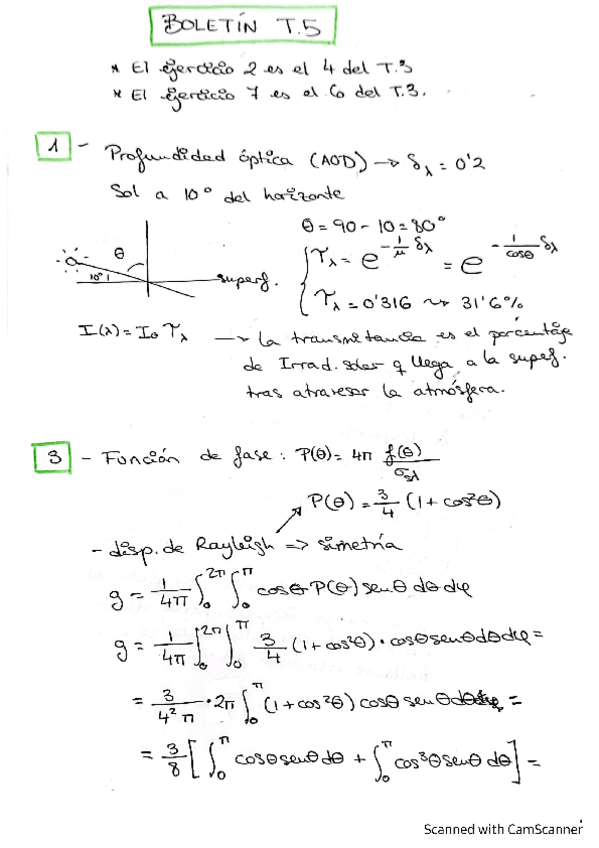 BOLETÍN T.5
* El ejercicio 2 es el 4 del T.3
* El ejercicio 7 es el 6 del T.3.
1 - Profundidad óptica (AOD) → δλ = 0'2
Sol a 10° del horizonte
θ = 90 - 10 = 80°
θ
10°
superf.
τλ = e^(-1/μ δλ) = e^(-1/cosθ δλ)
τλ = 0'316 ⇝ 31'6%
I(λ) = I₀ τλ → La transmitancia es el porcentaje
de Irrad. solar q llega a la superf.
tras atravesar la atmósfera.
3 - Función de fase : P(θ) = 4π f(θ)/σsλ
P(θ) = 3/4 (1 + cos²θ)
- disp. de Rayleigh ⇒ simetría
g = 1/4π ∫₀^2π ∫₀^π cosθ P(θ) senθ dθ dφ
g = 1/4π ∫₀^2π ∫₀^π 3/4 (1 + cos²θ) · cosθ senθ dθ dφ =
= 3/4²π · 2π ∫₀^π (1 + cos²θ) cosθ senθ dθ =
= 3/8 [∫₀^π cosθ senθ dθ + ∫₀^π cos³θ senθ dθ] =
Scanned with CamScanner